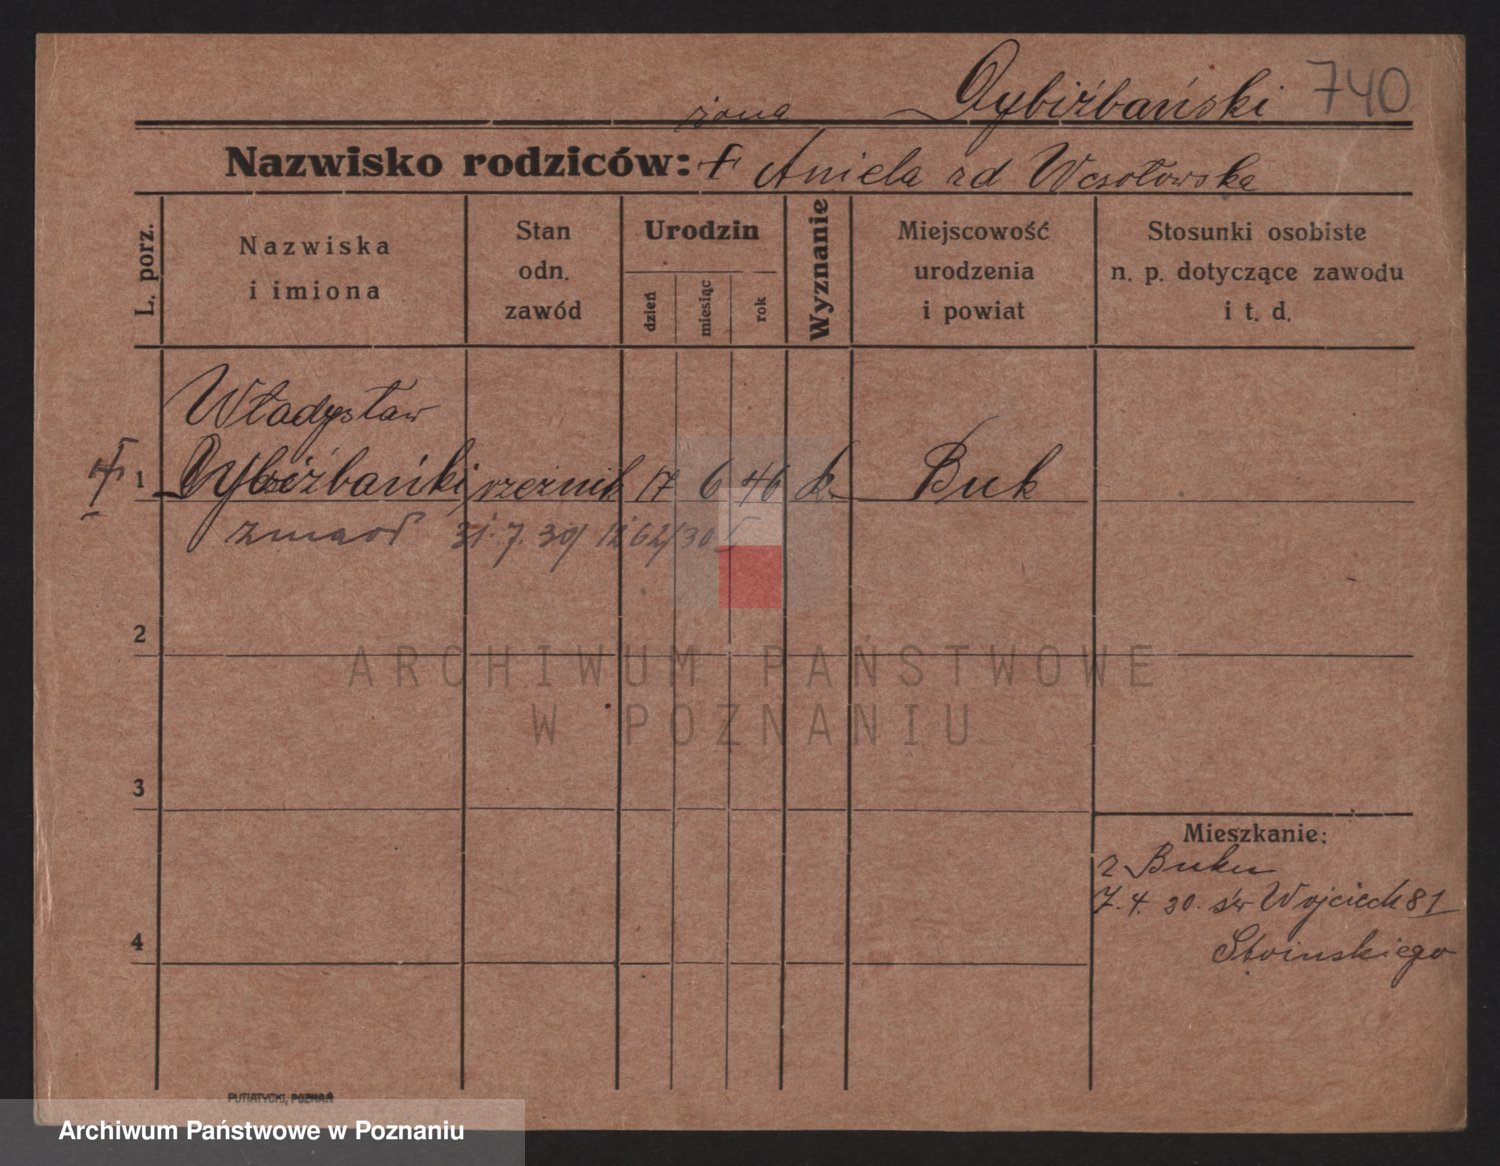 Dybiźbański 740
żona
Nazwisko rodziców: + Aniela rd Wesołowska
L. porz.
Nazwiska
i imiona
Stan
odn.
zawód
Urodzin
dzień
miesiąc
rok
Wyznanie
Miejscowość
urodzenia
i powiat
Stosunki osobiste
n. p. dotyczące zawodu
i t. d.
Władysław
1 Dybiźbański rzeźnik 17 6 46 k. Buk
zmarł 31.7.30
2
ARCHIWUM PAŃSTWOWE
W POZNANIU
3
Mieszkanie:
z Buku
7. 4. 30. św Wojciech 81
Stoinskiego
4
PUTIATYCKI, POZNAŃ
Archiwum Państwowe w Poznaniu